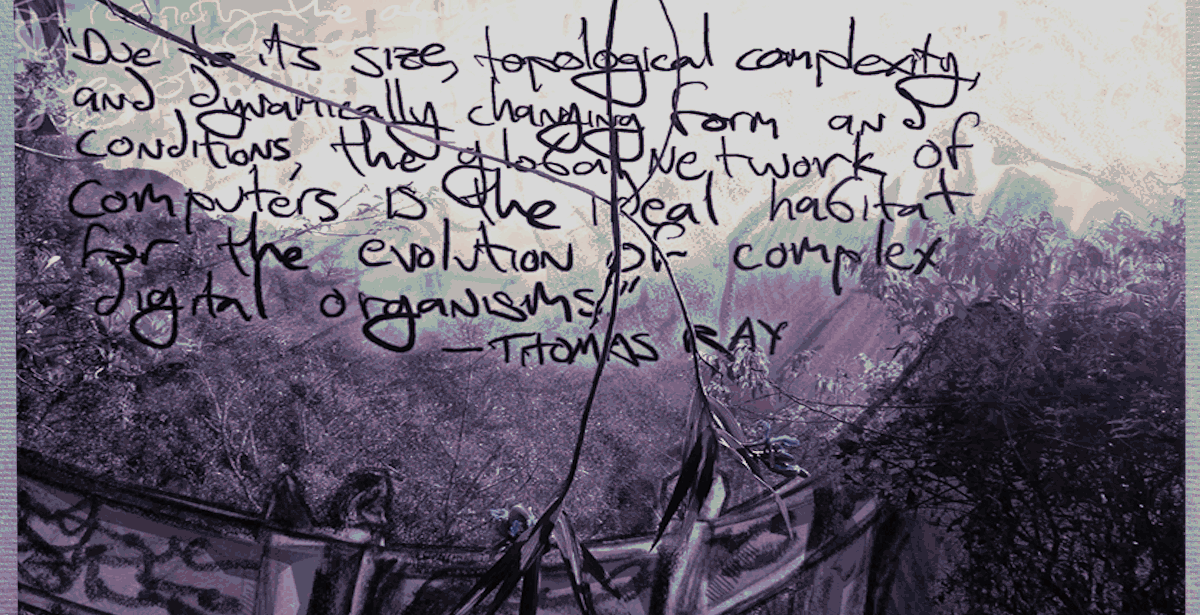 "Due to its size, topological complexity,
and dynamically changing form and
conditions, the global network of
computers is the ideal habitat
for the evolution of complex
digital organisms."
—THOMAS RAY